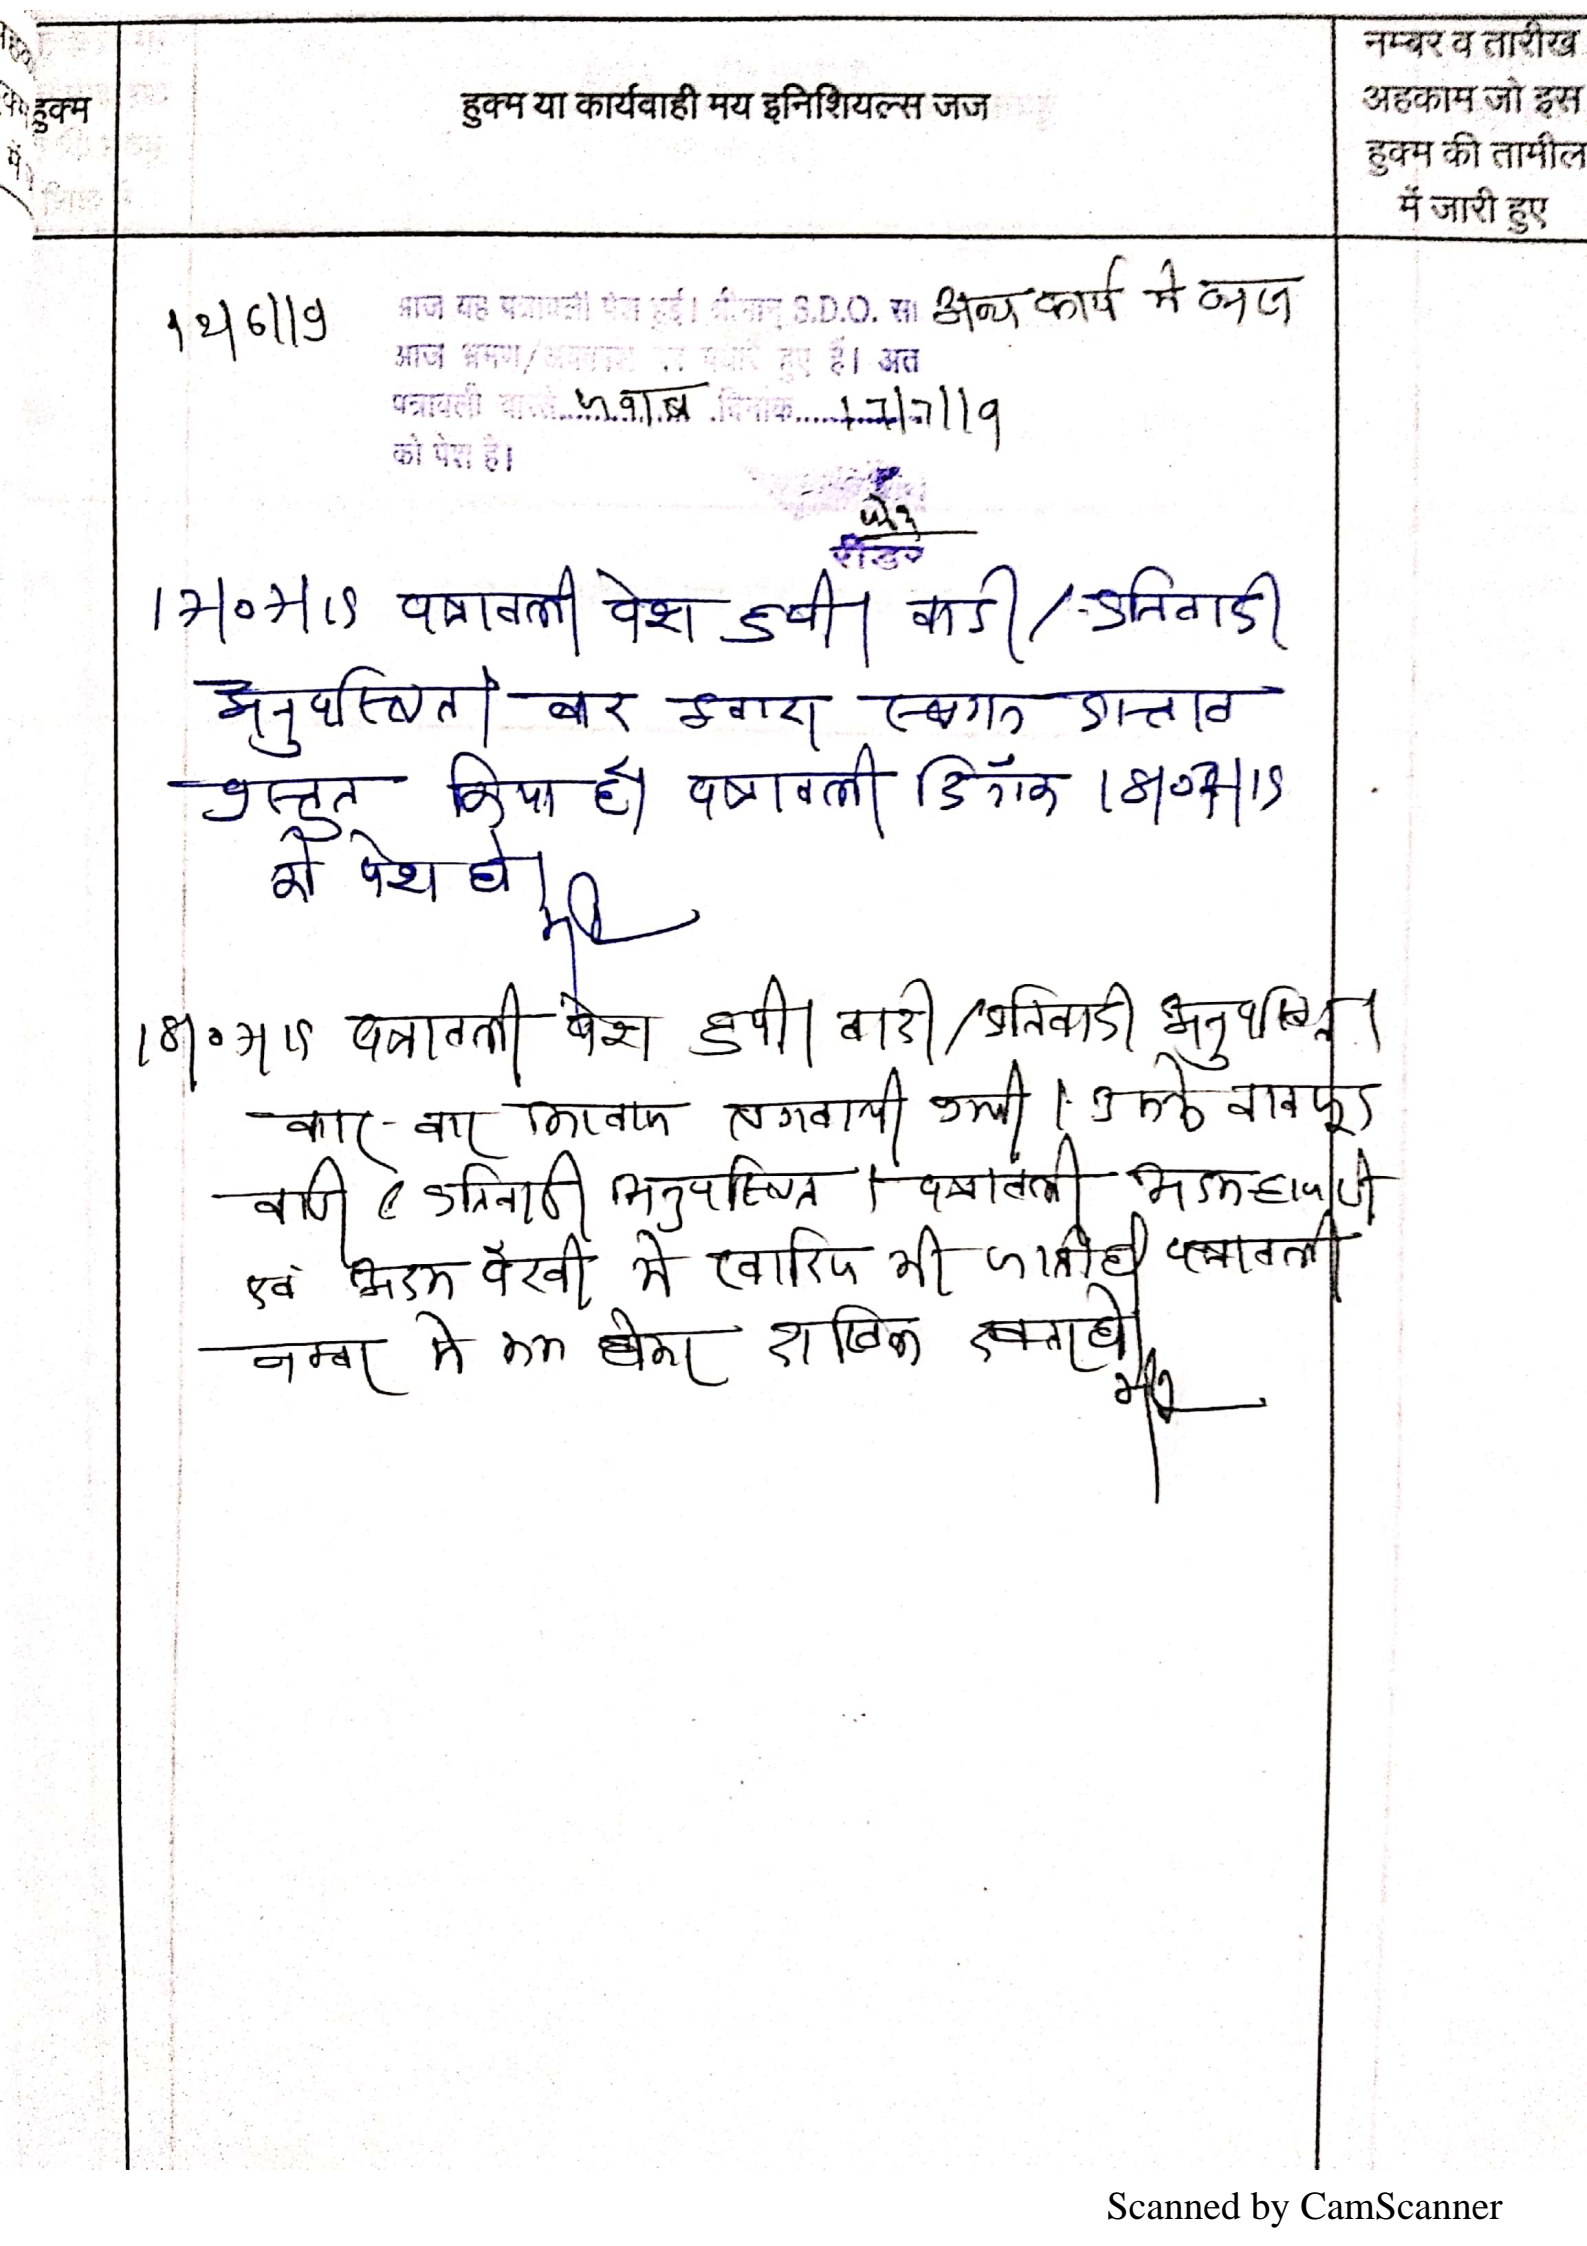 हुक्म
में
हुक्म या कार्यवाही मय इनिशियल्स जज
नम्बर व तारीख
अहकाम जो इस
हुक्म की तामील
में जारी हुए
12/6/19 आज यह पत्रावली पेश हुई। श्रीमान् S.D.O. सा अन्य कार्य मे व्यस्त
आज भ्रमण/अवकाश पर पधारे हुए हैं। अत
पत्रावली वास्ते जवाब दिनांक 17/7/19
को पेश है।
रीडर
17/07/19 पत्रावली पेश हुयी। वादी/प्रतिवादी
अनुपस्थित। बार द्वारा स्थगन प्रस्ताव
प्रस्तुत किया है। पत्रावली दिनाँक 18/07/19
को पेश हो।
18/07/19 पत्रावली पेश हुयी। वादी/प्रतिवादी अनुपस्थित।
बार-बार आवाज लगवायी गयी। उसके बावजूद
वादी/प्रतिवादी अनुपस्थित। पत्रावली अदमहाजरी
एवं अदम पैरवी मे खारिज की जाती है। पत्रावली
नम्बर मे कम होकर दाखिल दफ्तर हो।
Scanned by CamScanner